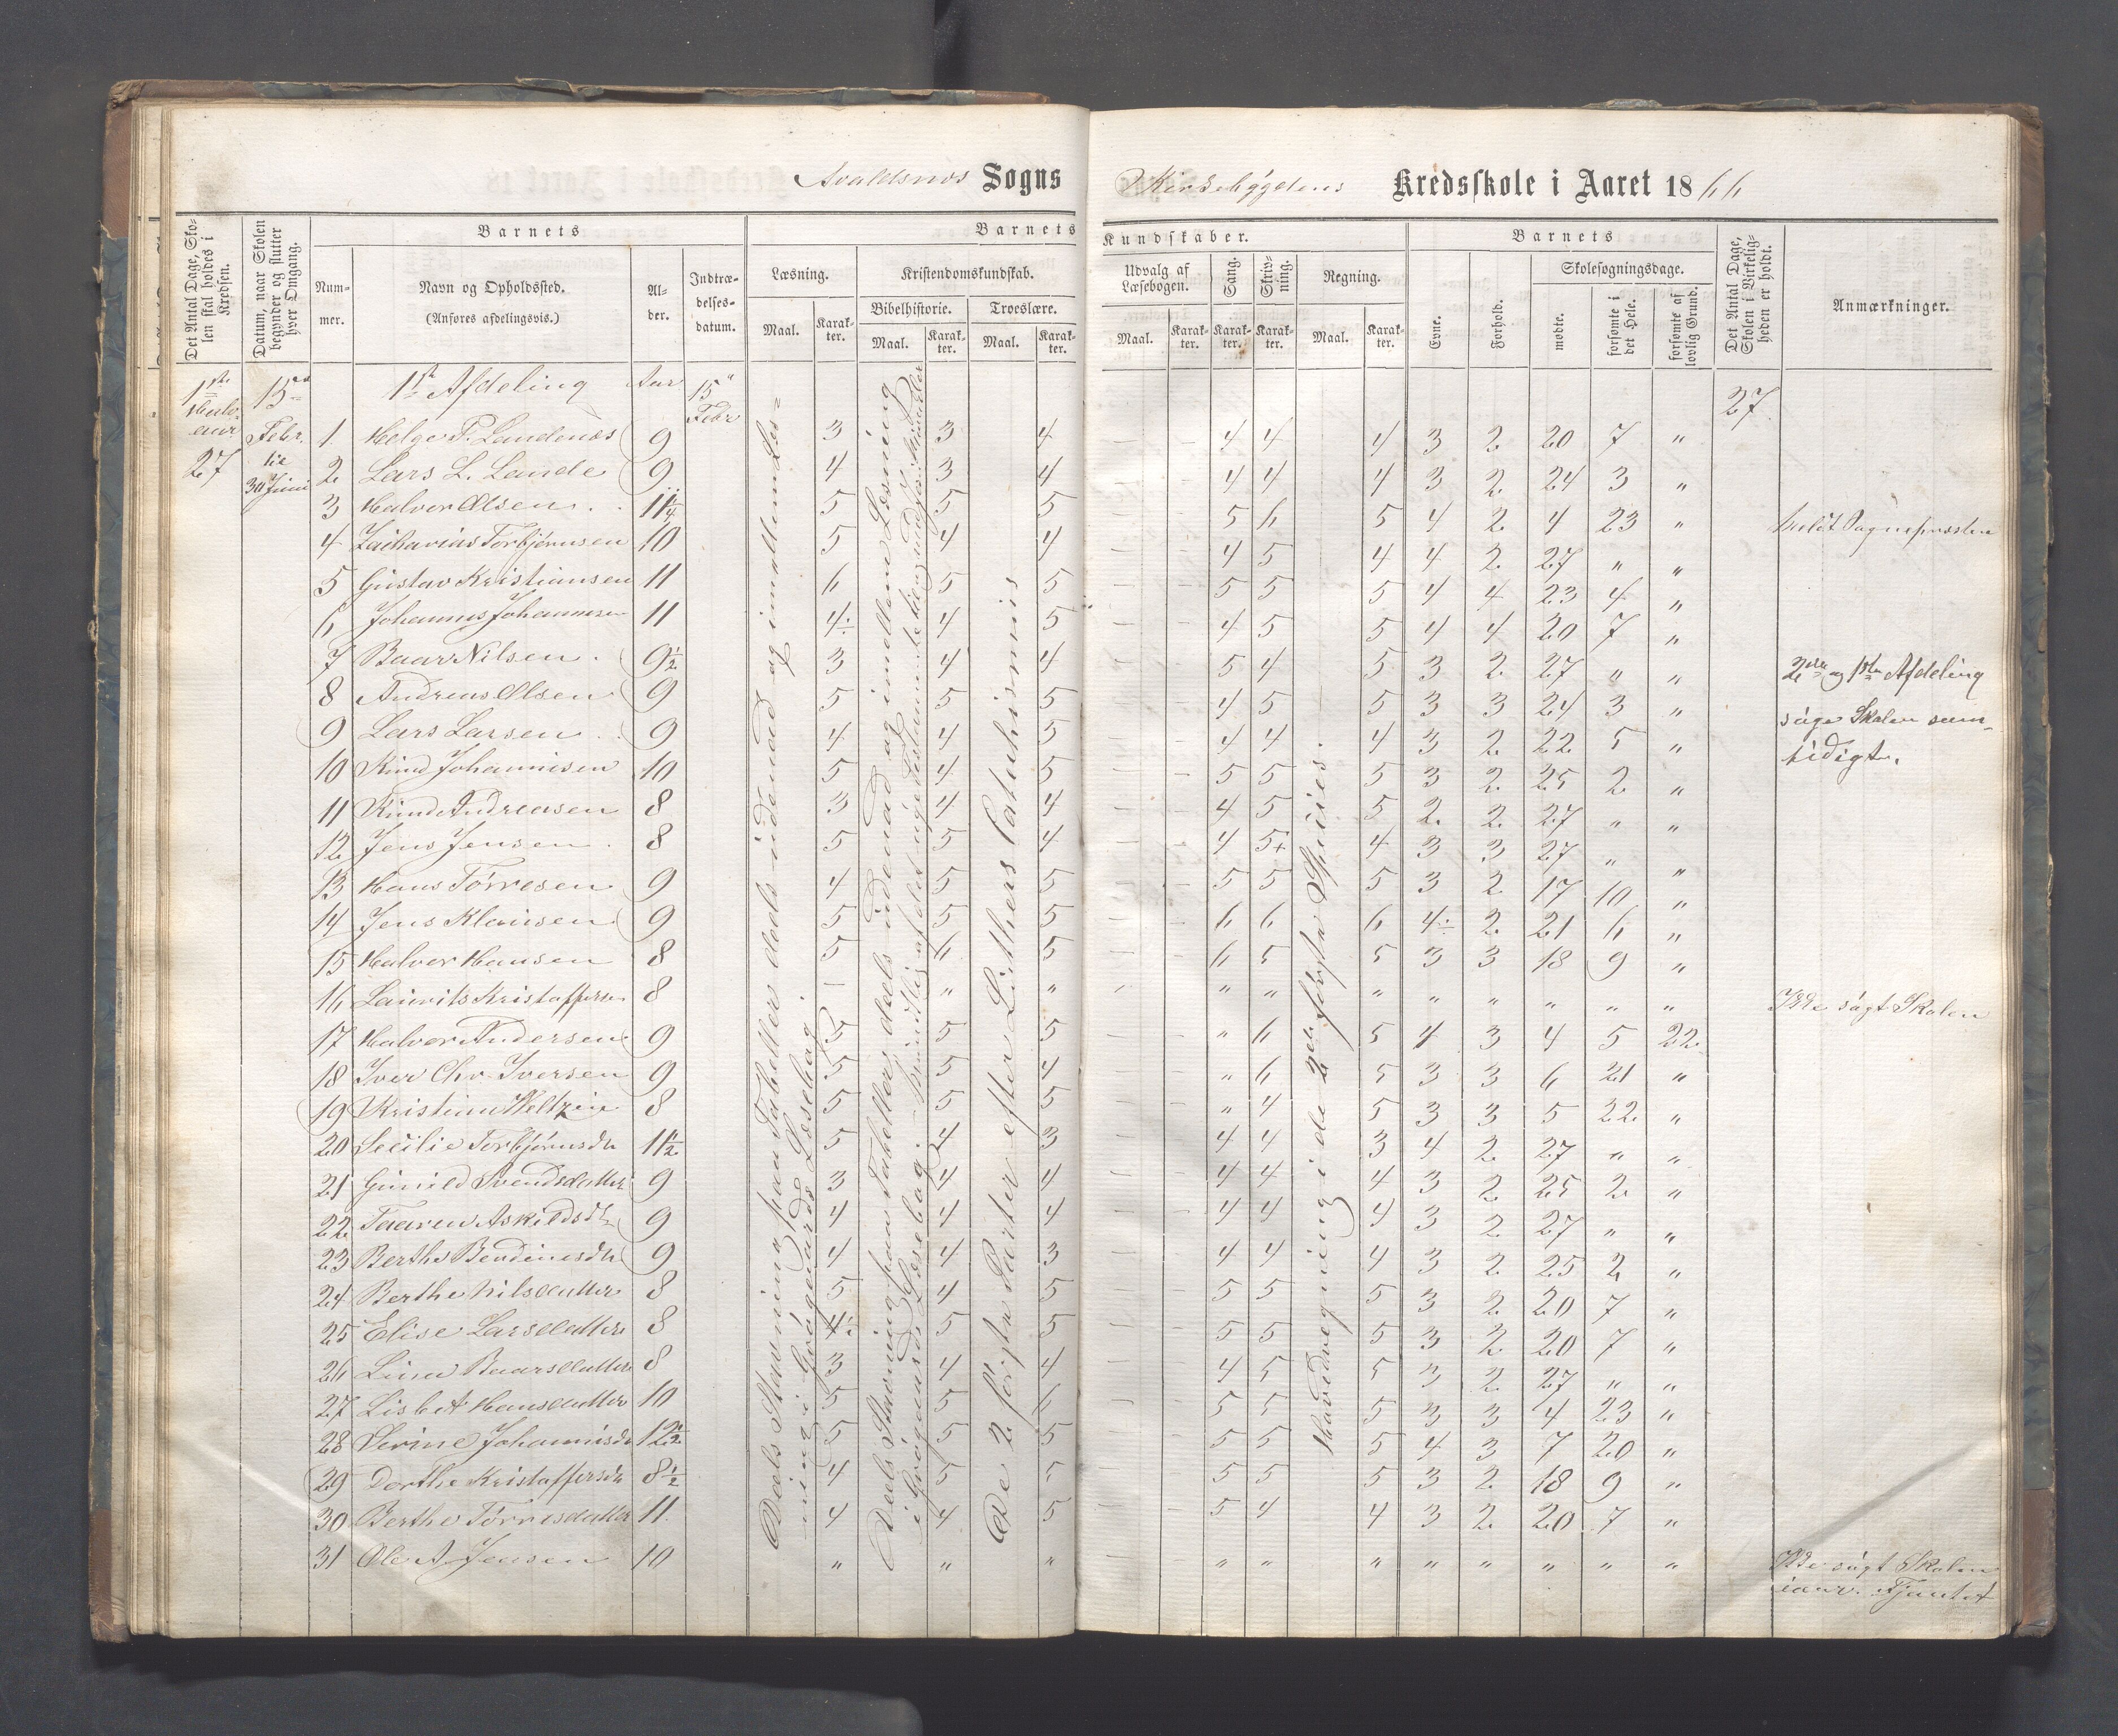 Avaldsnes Sogns
Kirkebygdens Kredsskole i Aaret 1866
Det Antal Dage, Sko-
len skal holdes i
Kredsen.
Datum, naar Skolen
begynder og slutter
hver Omgang.
Barnets
Num-
mer.
Navn og Opholdssted.
(Anføres afdelingsvis.)
Al-
der.
Indtræ-
delses-
datum.
Barnets
Læsning.
Maal.
Karak-
ter.
Kristendomskundskab.
Bibelhistorie.
Maal.
Karak-
ter.
Troeslære.
Maal.
Karak-
ter.
Kundskaber.
Udvalg af
Læsebogen.
Maal.
Karak-
ter.
Sang.
Karak-
ter.
Skriv-
ning.
Karak-
ter.
Regning.
Maal.
Karak-
ter.
Barnets
Evne.
Forhold.
Skolesøgningsdage.
mødte.
forsømte i
det Hele.
forsømte af
lovlig Grund.
Det Antal Dage,
Skolen i Virkelig-
heden er holdt.
Anmærkninger.
1ste Halv-
aar
27
15de
Febr.
til
30 Juni
1ste Afdeling Aar 15 Febr 27
1 Helge P. Landenes 9 3 3 4 — — 4 4 4 3 2 20 7 "
2 Lars L. Lande 9 4 3 4 — — 4 4 4 3 2 24 3 "
3 Halvor Olsen 11 1/4 5 5 5 — — 5 6 5 4 2 4 23 "
4 Zacharias Torbjørnsen 10 5 4 4 — — 4 5 4 4 2 27 " "
5 Gustav Kristiansen 11 6 5 5 — — 5 5 5 4 4 23 4 "
6 Johannes Johannesen 11 4÷ 4 5 — — 4 5 5 4 4 20 7 "
7 Baar Nilsen 9 1/2 3 4 4 — — 5 4 5 3 2 27 " " 2den og 1ste Afdeling
8 Andreas Olsen 9 5 5 5 — — 4 5 5 3 3 24 3 " søge Skolen sam-
9 Lars Larsen 9 4 4 5 — — 4 4 4 3 2 22 5 " tidigt.
10 Knud Johannesen 10 5 4 5 — — 5 5 5 3 2 25 2 "
11 Knud Andreasen 8 3 4 4 — — 4 5 5 2 2 27 " "
12 Jens Jensen 8 5 5 4 — — 4 5+ 4 3 3 27 " "
13 Hans Törresen 9 4 5 5 — — 5 5 5 3 2 17 10 "
14 Jens Klausen 9 5 5 5 — — 6 6 6 4÷ 2 21 6 "
15 Halvor Hansen 8 5 6 5 — — 6 5 5 3 3 18 9 "
16 Laurits Kristoffersen 8 — " " " " " " " " " " Ikke søgt Skolen
17 Halvor Andersen 9 5 5 5 — — " 6 5 4 3 4 5 22
18 Iver Chr. Iversen 9 5 5 4 — — " 6 5 3 3 6 21 "
19 Kristian Weltzin 8 5 5 5 — — " 4 5 3 3 5 22 "
20 Secilie Torbjørnsdtr 11 1/2 5 4 3 — — 4 4 3 4 2 27 " "
21 Gunild Svendsdatter 9 3 4 4 — — 4 4 4 3 2 25 2 "
22 Taaren Askildsdtr 9 4 4 4 — — 4 4 4 3 2 27 " "
23 Berthe Bendinesdtr 9 4 4 3 — — 4 4 4 3 2 25 2 "
24 Berthe Nilsdatter 8 5 4 5 — — 5 5 5 3 2 20 7 "
25 Elise Larsdatter 8 4÷ 5 5 — — 5 5 5 3 2 20 7 "
26 Lina Baarsdatter 8 3 4 4 — — 4 5 5 3 2 27 " "
27 Lisbet Hansdatter 10 5 5 6 — — 5 5 5 3 3 4 23 "
28 Serine Johannisdtr 12 1/2 5 5 5 — — 5 5 5 4 3 7 20 "
29 Dorthe Kristoffersdtr 8 1/2 4 5 5 — — 5 5 5 3 2 18 9 "
30 Berthe Törresdatter 11 4 4 5 — — 5 4 4 3 2 20 7 "
31 Ole A. Jensen 10 " " " — " " " " " " " " Ikke søgt Skolen
iaar.
Deels Stavning paa Tabeller deels indenad og imellem Læs=
ning i Grøgaards Læsebog
Deels Stavning paa Tabeller deels indenad og imellem Læsning
i Grøgaards Læsebog.
De 2 første Parter efter Luthers Catechismus
Hovedregning i de 2de første Species.